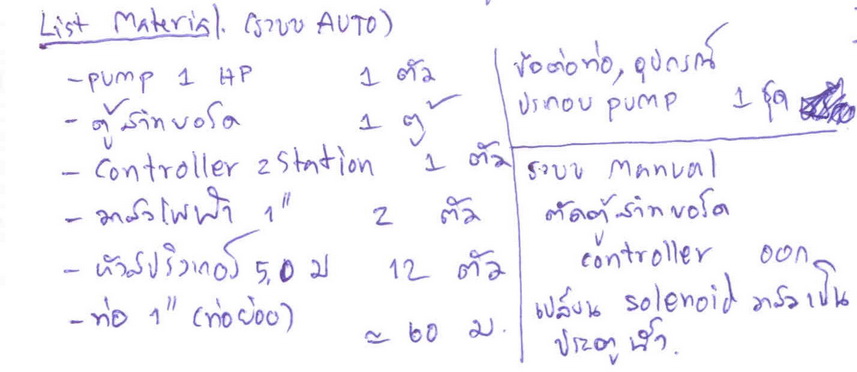 List Material. (ระบบ AUTO)
- PUMP 1 HP 1 ตัว
- ตู้สวิทบอร์ด 1 ตู้
- Controller 2 Station 1 ตัว
- วาล์วไฟฟ้า 1" 2 ตัว
- หัวสปริงเกอร์ 5.0 ม 12 ตัว
- ท่อ 1" (ท่อย่อย) ≈ 60 ม.
ข้อต่อท่อ, อุปกรณ์
ประกอบ PUMP 1 ชุด
ระบบ Manual
ตัดตู้สวิทบอร์ด
controller ออก
เปลี่ยน solenoid วาล์วเป็น
ประตูน้ำ.